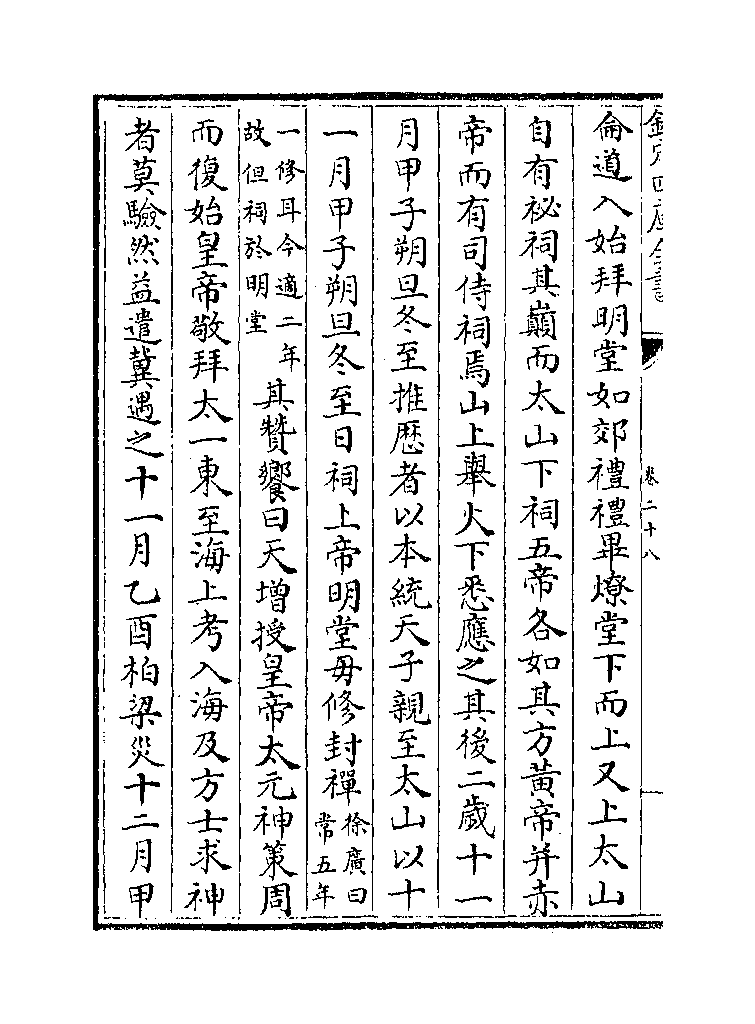 欽定四庫全書
卷二十八
崙道入始拜明堂如郊禮禮畢燎堂下而上又上太山
自有祕祠其巔而太山下祠五帝各如其方黃帝并赤
帝而有司侍祠焉山上舉火下悉應之其後二歲十一
月甲子朔旦冬至推厯者以本統天子親至太山以十
一月甲子朔旦冬至日祠上帝明堂毋修封禪徐廣曰常五年
一修耳今適二年故但祠於明堂其贊饗曰天增授皇帝太元神策周
而復始皇帝敬拜太一東至海上考入海及方士求神
者莫驗然益遣冀遇之十一月乙酉柏梁災十二月甲